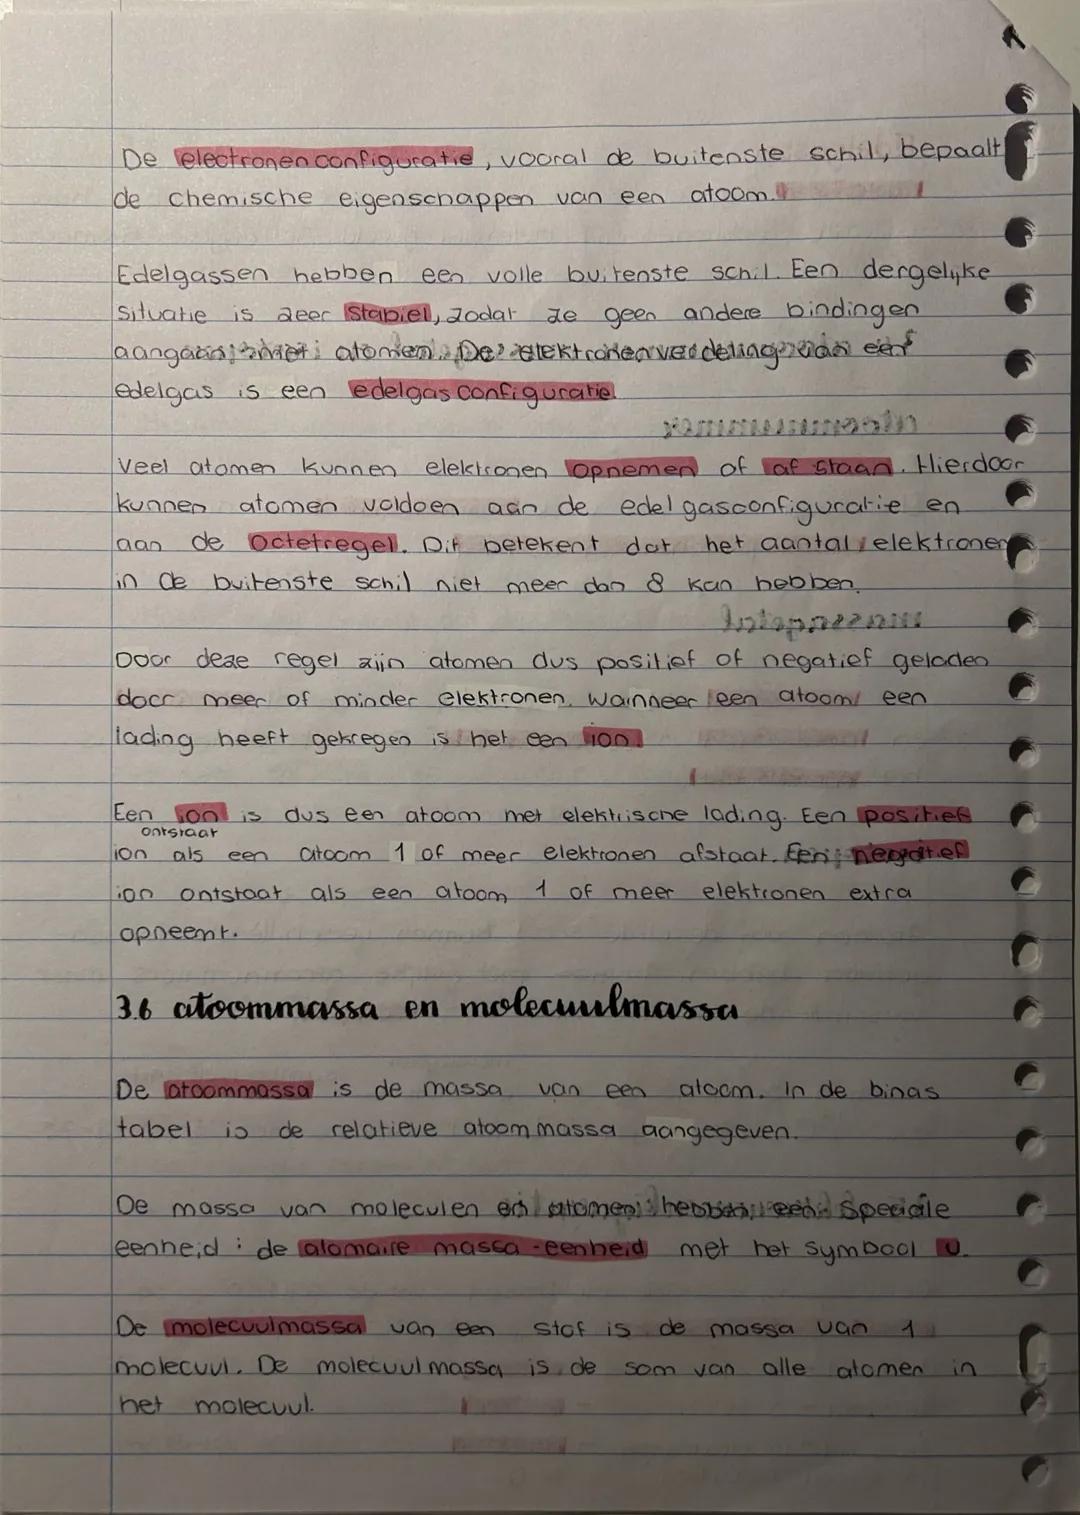 De electronen configuratie, vooral de buitenste schil, bepaalt
de chemische eigenschappen van een atoom.
Edelgassen hebben een volle buitenste schil. Een dergelijke
situatie is zeer stabiel, zodat ze geen andere bindingen
aangaan met atomen. De elektronenverdeling van een
edelgas is een edelgas configuratie
Veel atomen kunnen elektronen opnemen of af staan. Hierdoor
kunnen atomen voldoen aan de edelgasconfiguratie en
aan de Octetregel. Dit betekent dat het aantal elektronen
in de buitenste schil niet meer dan 8 kan hebben.
Door deze regel zijn atomen dus positief of negatief geladen
door meer of minder elektronen. Wanneer een atoom een
lading heeft gekregen is het een ion.
Een ion is dus een atoom met elektrische lading. Een positief
ontstaat
ion als een atoom 1 of meer elektronen afstaat. Een negatief
ion ontstaat als een atoom 1 of meer elektronen extra
opneemt.
3.6 atoommassa en molecuulmassa
De atoommassa is de massa van een atoom. In de binas
tabel is de relatieve atoommassa aangegeven.
De massa van moleculen en atomen hebben een speciale
eenheid : de atomaire massa-eenheid met het symbool u.
De molecuulmassa van een stof is de massa van 1
molecuul. De molecuulmassa is de som van alle atomen in
het molecuul.